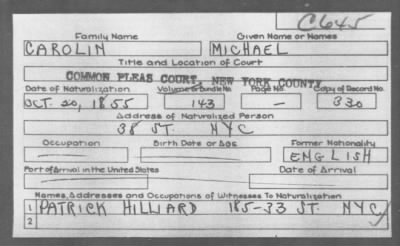 C645
Family Name Given Name or Names
CAROLIN MICHAEL
Title and Location of Court
COMMON PLEAS COURT, NEW YORK COUNTY
Date of Naturalization Volume or Bundle No. Page No. Copy of Record No.
OCT. 20, 1855 143 — 330
Address of Naturalized Person
38 ST. NYC
Occupation Birth Date or Age Former Nationality
ENGLISH
Port of Arrival in the United States Date of Arrival
Names, Addresses and Occupations of Witnesses To Naturalization
1 PATRICK HILLIARD 185-33 ST. NYC
2